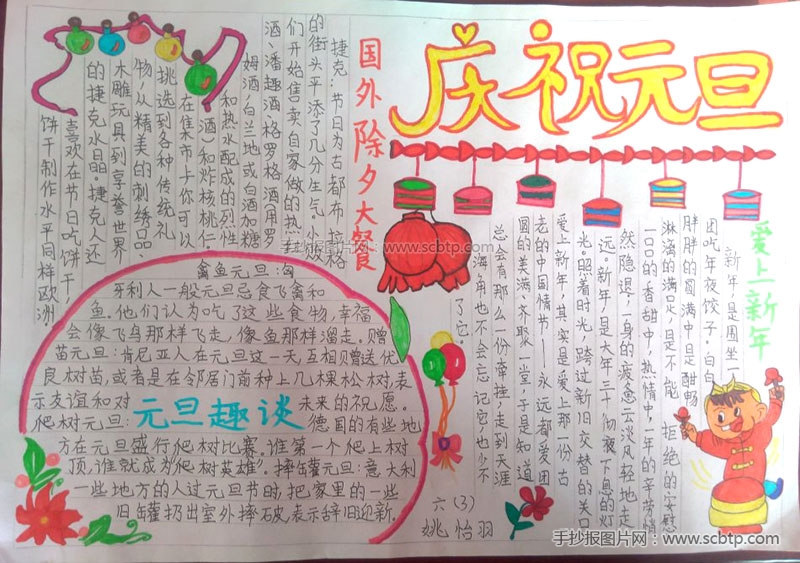 庆祝元旦
爱上新年
新年，是围坐一
团吃年夜饺子，白白
胖胖的圆满中是酣畅
淋漓的满足，是不能 拒绝的安慰
一口口的香甜中，热情中，一年的辛劳悄
然隐退，一身的疲惫云淡风轻地走
远。新年，是大年三十彻夜下息的灯
光，照着时光，跨过新旧交替的关口
爱上新年，其实是爱上那一份古
老的中国情节——永远都爱团
圆的美满、齐聚一堂，于是知道
总会有那么一份牵挂，走到天涯
海角也不会忘记它，也少不
了它。
国外除夕大餐
捷克：节日为古都布拉格
的街头平添了几分生气，小贩
们开始售卖自家做的热红
酒、潘趣酒、格罗格酒（用罗
姆酒、白兰地或白酒加糖
和热水配成的烈性
酒）和炸核桃仁。
在集市上你可以
挑选到各种传统礼
物，从精美的刺绣品、
木雕玩具到享誉世界
的捷克水晶。捷克人还
喜欢在节日吃饼干，
饼干制作水平同样欧洲
禽鱼元旦：匈
牙利人一般元旦忌食飞禽和
鱼。他们认为吃了这些食物，幸福
会像飞鸟那样飞走，像鱼那样溜走。赠
苗元旦：肯尼亚人在元旦这一天互相赠送优
良树苗，或者是在邻居门前种上几棵松树，表
示友谊和对 未来的祝愿。
元旦趣谈
爬树元旦： 德国的有些地
方在元旦盛行爬树比赛。谁第一个爬上树
顶，谁就成为"爬树英雄"。摔缶罐元旦：意大利
一些地方的人过元旦节时，把家里的一些
旧缶罐扔出室外摔破，表示辞旧迎新。
六（3）
姚怡羽
手抄报图片网 www.scbtp.com
手抄报图片网：www.scbtp.com